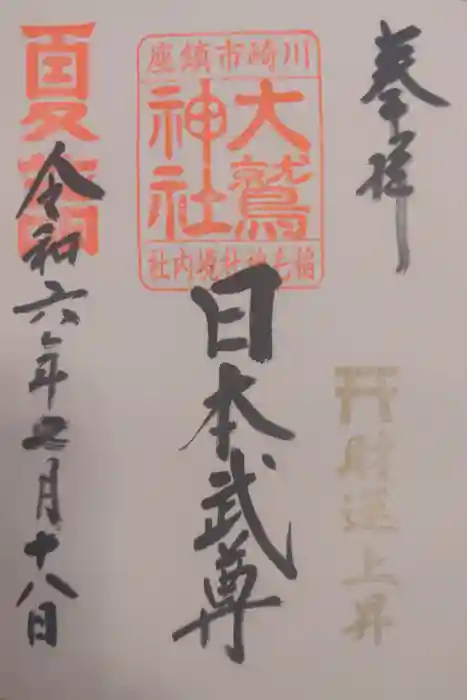 奉拝
財運上昇
川崎市鎮座
大鷲
神社
稲毛神社境内社
日本武尊
夏詣
令和六年七月十八日